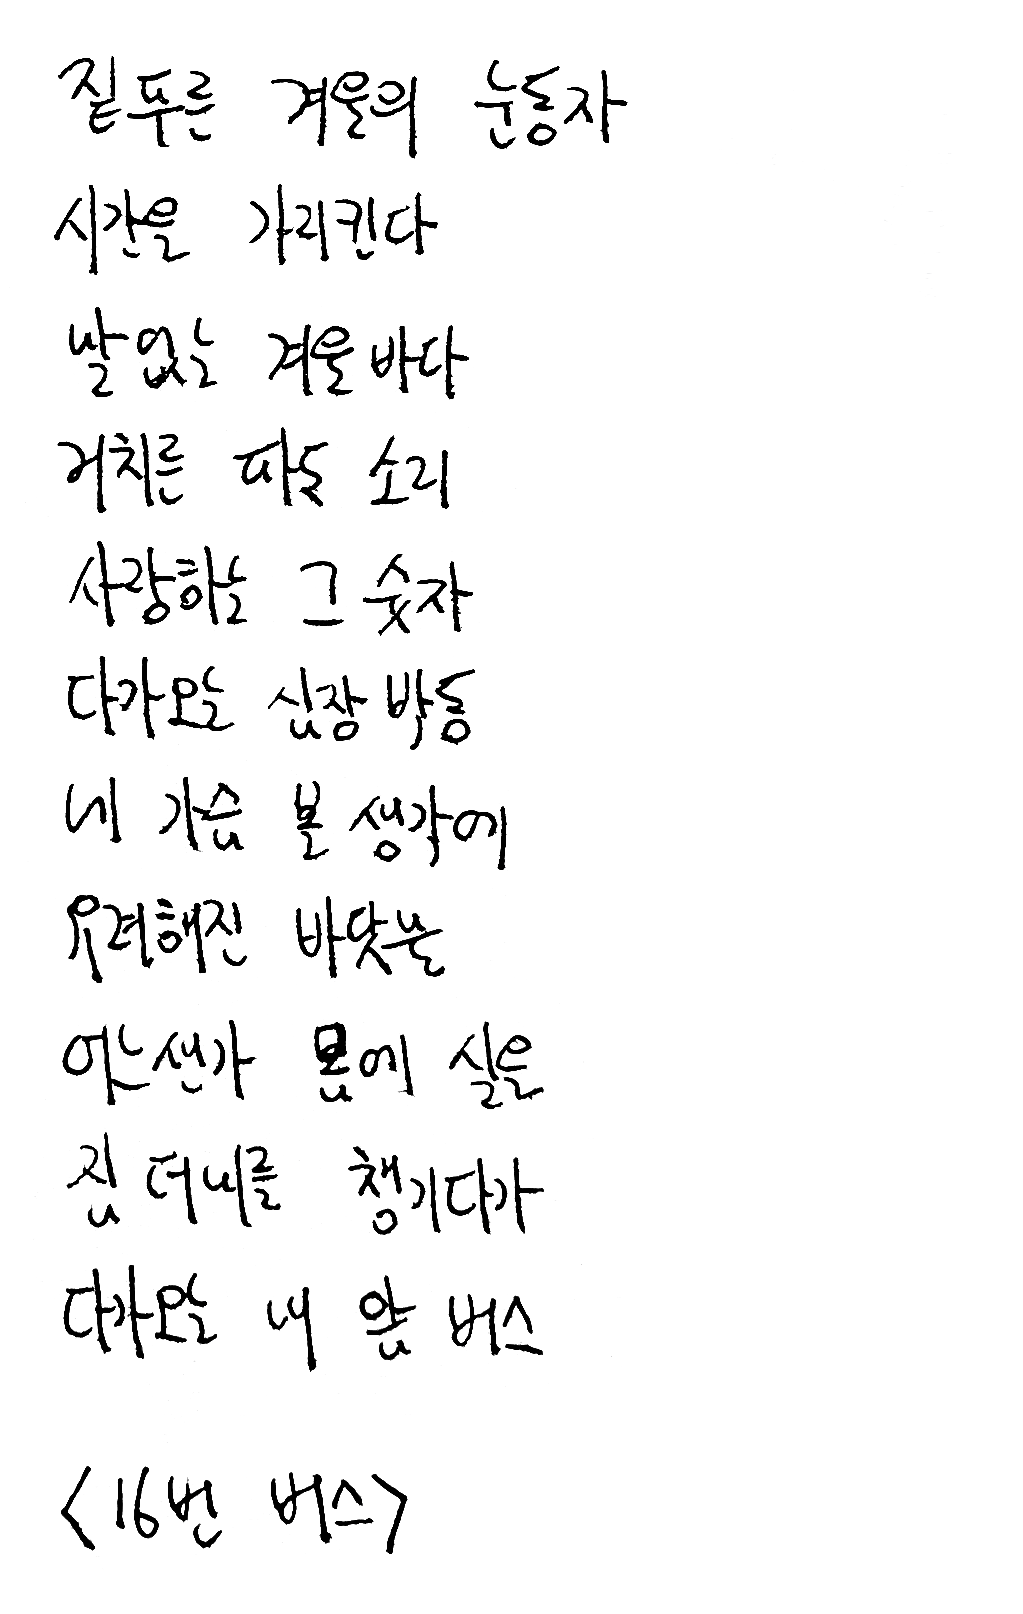 짙푸른 겨울의 눈동자
시간을 가리킨다
발 없는 겨울 바다
거치른 파도 소리
사랑하는 그 숫자
다가오는 심장 박동
네 가슴 볼 생각에
유려해진 바닷눈
어느샌가 몸에 실은
짐 더미를 챙기다가
다가오는 내 앞 버스
<16번 버스>